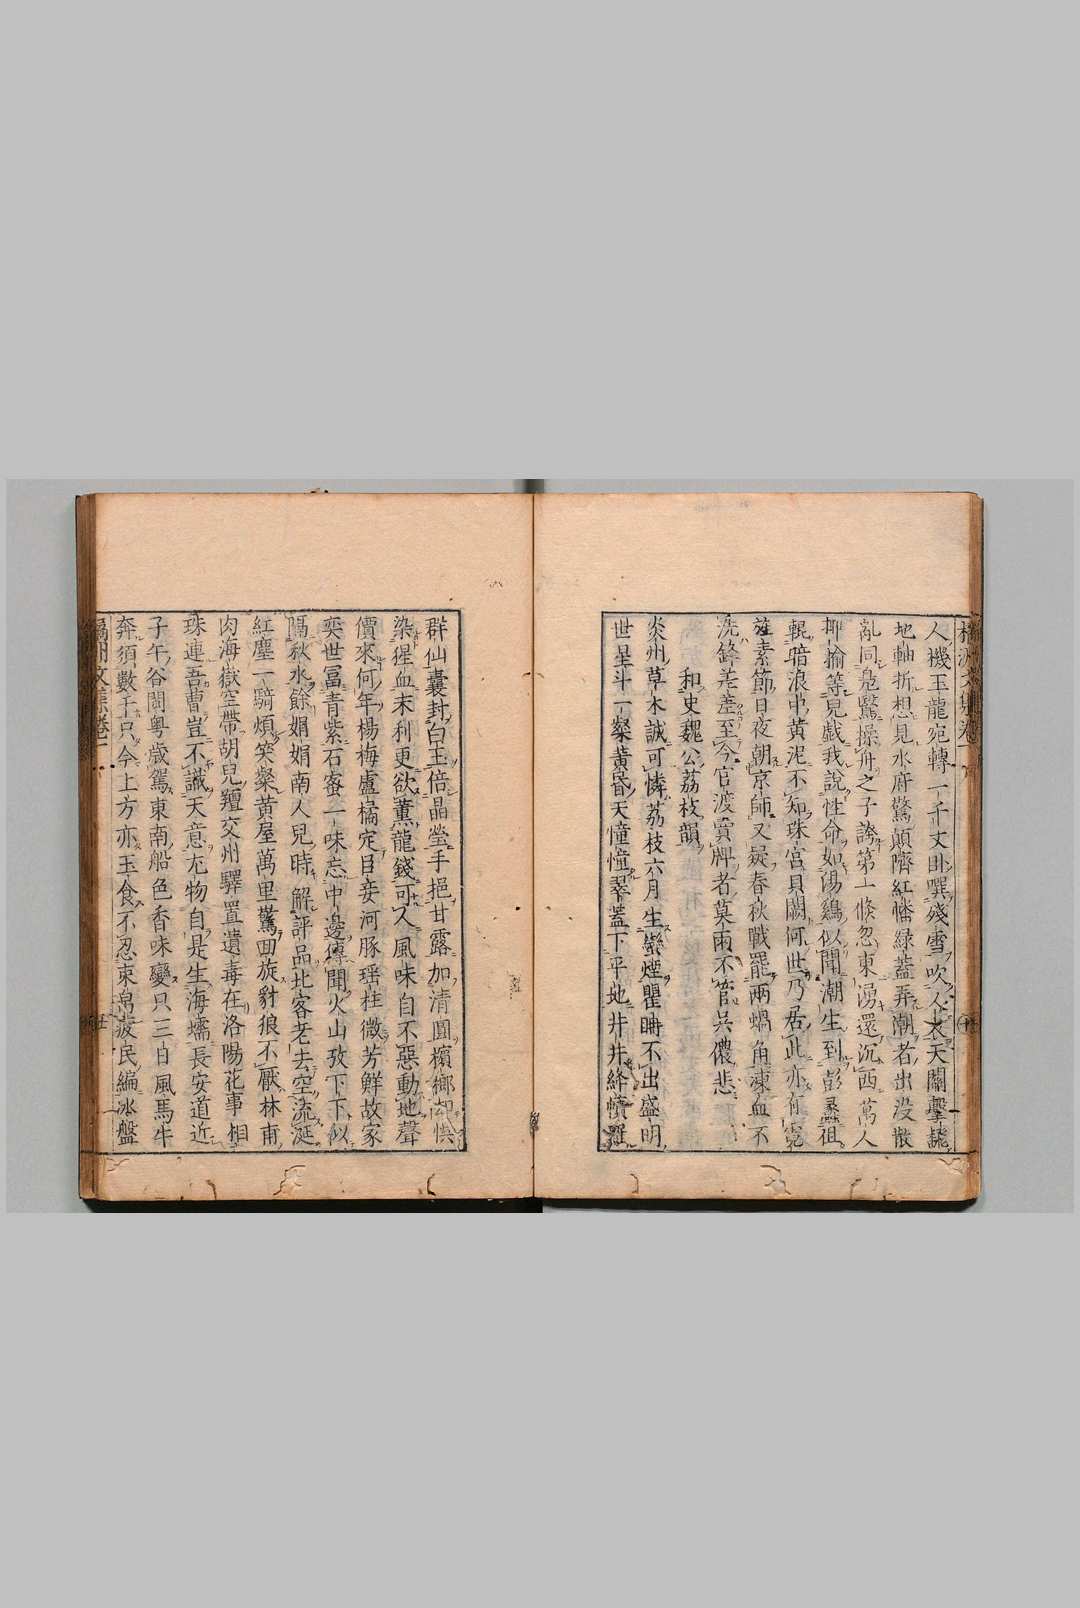 人機玉龍宛轉一千丈卧噀殘雪吹人衣天關擊
地軸折想見水府驚顛隮紅幡緑蓋弄潮者出没散
亂同鳬鷖操舟之子誇第一倏忽東湧還沉西萬人
揶揄等兒戯我說性命如湯鷄似聞潮生到彭
輥暗浪中黄泥不知珠宮貝闕何世乃居此亦有
素節日夜朝京師又疑春秋戰罷兩蝸角凍血不
洗鋒差差至今官渡賣牌者莫雨不管呉儂悲
和史魏公荔枝韻
炎州草木誠可憐荔枝六月生蠻煙瞿𣆀不出盛明
世星斗一粲黄昏天憧憧翠蓋下平地井井絳幘羅
群仙囊封白玉倍晶瑩手挹甘露加清圓檳榔却怏
染猩血末利更欲薫龍錢可人風味自不惡動地聲
價來何年楊梅盧橘定臣妾河豚瑶柱微芳鮮故家
奕世冨青紫石蜜一味忘中邊傳聞火山孜下下似
隔秋水餘娟娟南人兒時解評品北客老去空流涎
紅塵一騎煩笑粲黄屋萬里驚回旋豺狼不厭林甫
肉海嶽空帶胡兒羶交州驛置遺毒在洛陽花事相
珠連吾曹豈不識天意尤物自是生海壖長安道近
子午谷閩粤歳駕東南船色香味變只三日風馬牛
奔須數千只今上方亦玉食不忍束帛疲民編冰盤
橘洲文集卷一